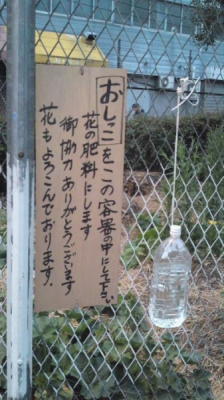 おしっこをこの容器の中にして下さい
花の肥料にします
御協力ありがとうございます
花もよろこんでおります。